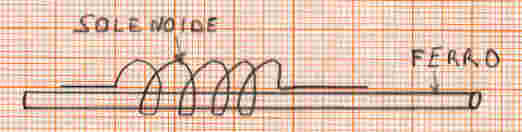 SOLENOIDE
FERRO